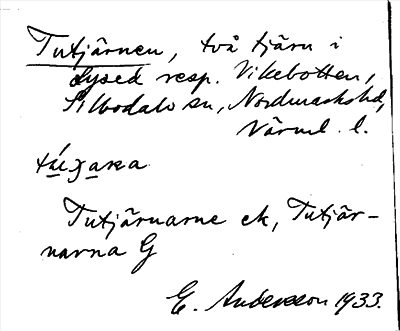 Tutjärnen, två tjärn i
Lysed resp. Vikebotten,
Silbodals sn, Nordmarks hd,
Värml. l.
Tutjärnarne ek, Tutjär-
narna G
E. Andersson 1933.